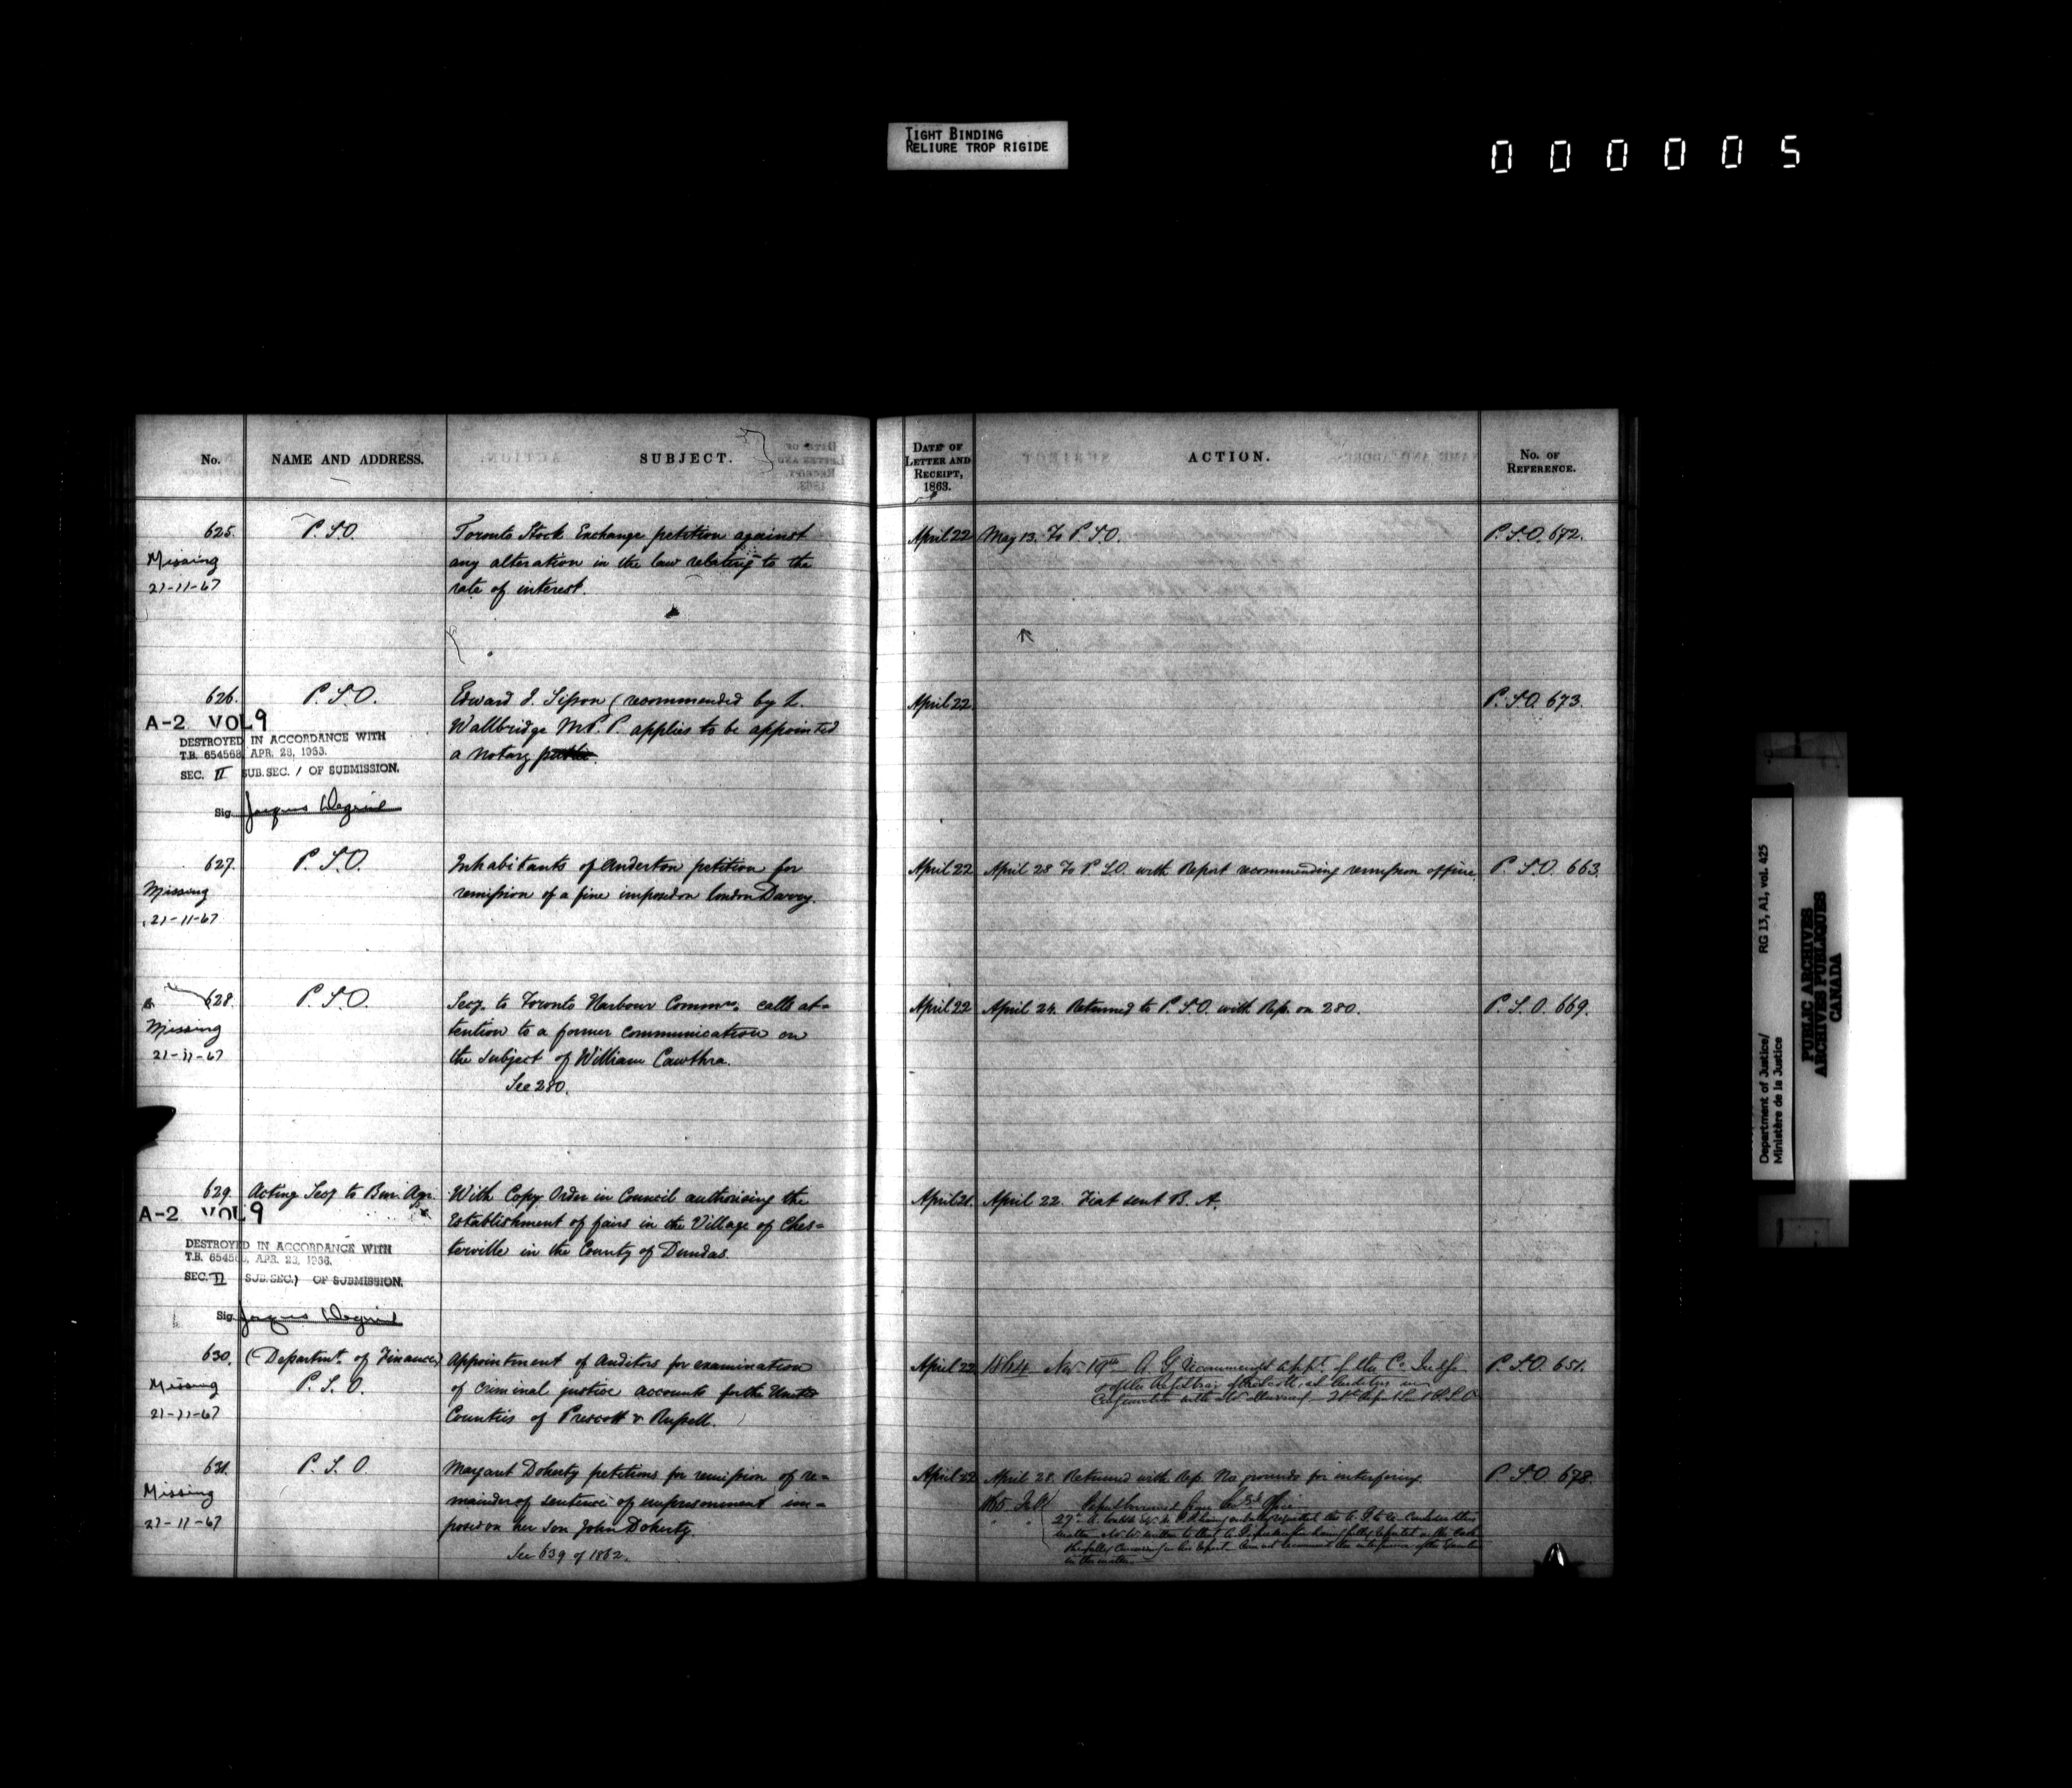 TIGHT BINDING
RELIURE TROP RIGIDE
000005
No. NAME AND ADDRESS. SUBJECT. DATE OF LETTER AND RECEIPT, 1863. ACTION. No. OF REFERENCE.
625. P.S.O. Toronto Stock Exchange petition against April 22 May 13. To P.S.O. P.S.O. 672.
Missing any alteration in the law relating to the
21-11-67 rate of interest.
626. P.S.O. Edward J. Sisson (recommended by L. April 22 P.S.O. 673.
A-2 VOL 9 Wallbridge M.P.P. applies to be appointed
DESTROYED IN ACCORDANCE WITH a notary public.
T.B. 654568, APR. 28, 1966.
SEC. II SUB.SEC. 1 OF SUBMISSION.
Sig. Jacques
627. P.S.O. Inhabitants of Anderton petition for April 22 April 28 To P.S.O. with Report recommending remission of fine. P.S.O. 663.
Missing remission of a fine imposed on London Davey.
21-11-67
628. P.S.O. Secy. to Toronto Harbour Commrs. calls at= April 22 April 24. Returned to P.S.O. with Rep. on 280. P.S.O. 669.
Missing tention to a former communication on
21-11-67 the subject of William Cawthra.
See 280.
629. Acting Secy to Bur. Agr. With Copy Order in Council authorising the April 21. April 22. Fiat sent B. A.
A-2 VOL 9 Establishment of fairs in the Village of Ches=
terville in the County of Dundas.
DESTROYED IN ACCORDANCE WITH
T.B. 654568, APR. 28, 1966.
SEC. II SUB.SEC. 1 OF SUBMISSION.
Sig. Jacques
630. (Departmt. of Finance) Appointment of Auditors for examination April 22 1864 Nov. A.G. recommends appt. of the Co. P.S.O. 651.
Missing P.S.O. of criminal justice accounts for the United of the as Auditors in
21-11-67 Counties of Prescott & Russell. Conjunction with
631. P.S.O. Margaret Doherty petitions for remission of re= April 22 April 28. Returned with Rep. No grounds for interfering. P.S.O. 678.
Missing mainder of sentence of imprisonment im= 1865 from Office
21-11-67 posed on her son John Doherty.
See 639 of 1862.
in the matter
Department of Justice/ RG 13, A1, vol. 425
Ministère de la Justice
PUBLIC ARCHIVES
ARCHIVES PUBLIQUES
CANADA